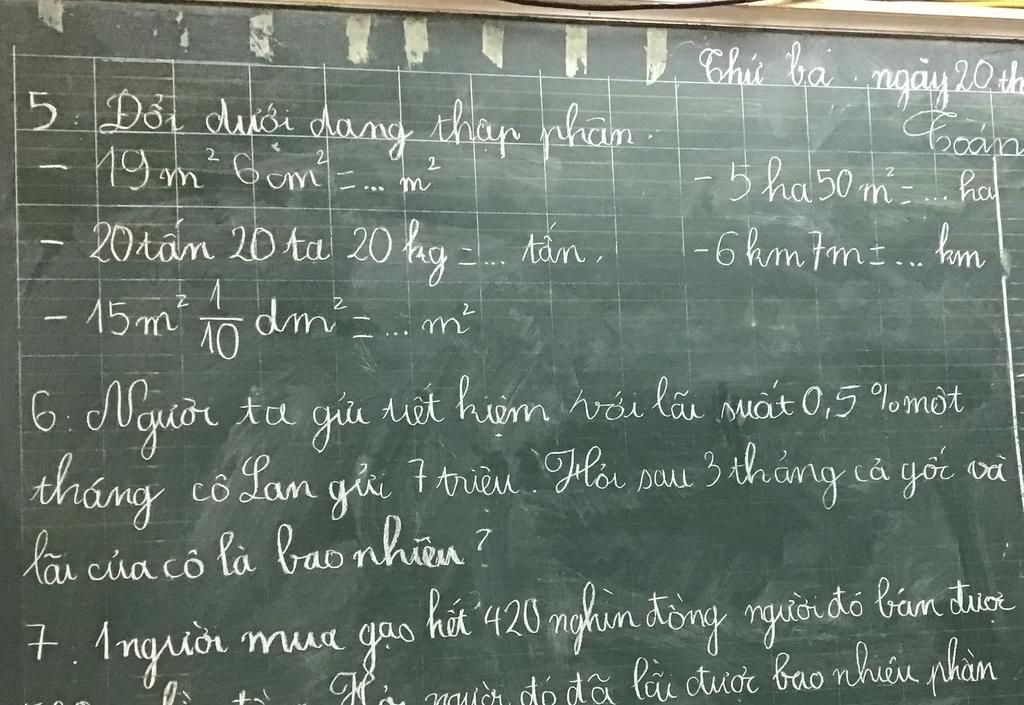 Thứ ba ngày 20 th
Toán
5. Đổi dưới dạng thập phân.
- 19m² 6cm² = ... m²
- 5ha 50m² = ... ha
- 20 tấn 20 tạ 20 kg = ... tấn.
- 6km 7m = ... km
- 15m² 1/10 dm² = ... m²
6. Người ta gửi tiết kiệm với lãi suất 0,5 % một
tháng cô Lan gửi 7 triệu. Hỏi sau 3 tháng cả gốc và
lãi của cô là bao nhiêu?
7. 1 người mua gạo hết 420 nghìn đồng người đó bán được
Hỏi người đó đã lãi được bao nhiêu phần